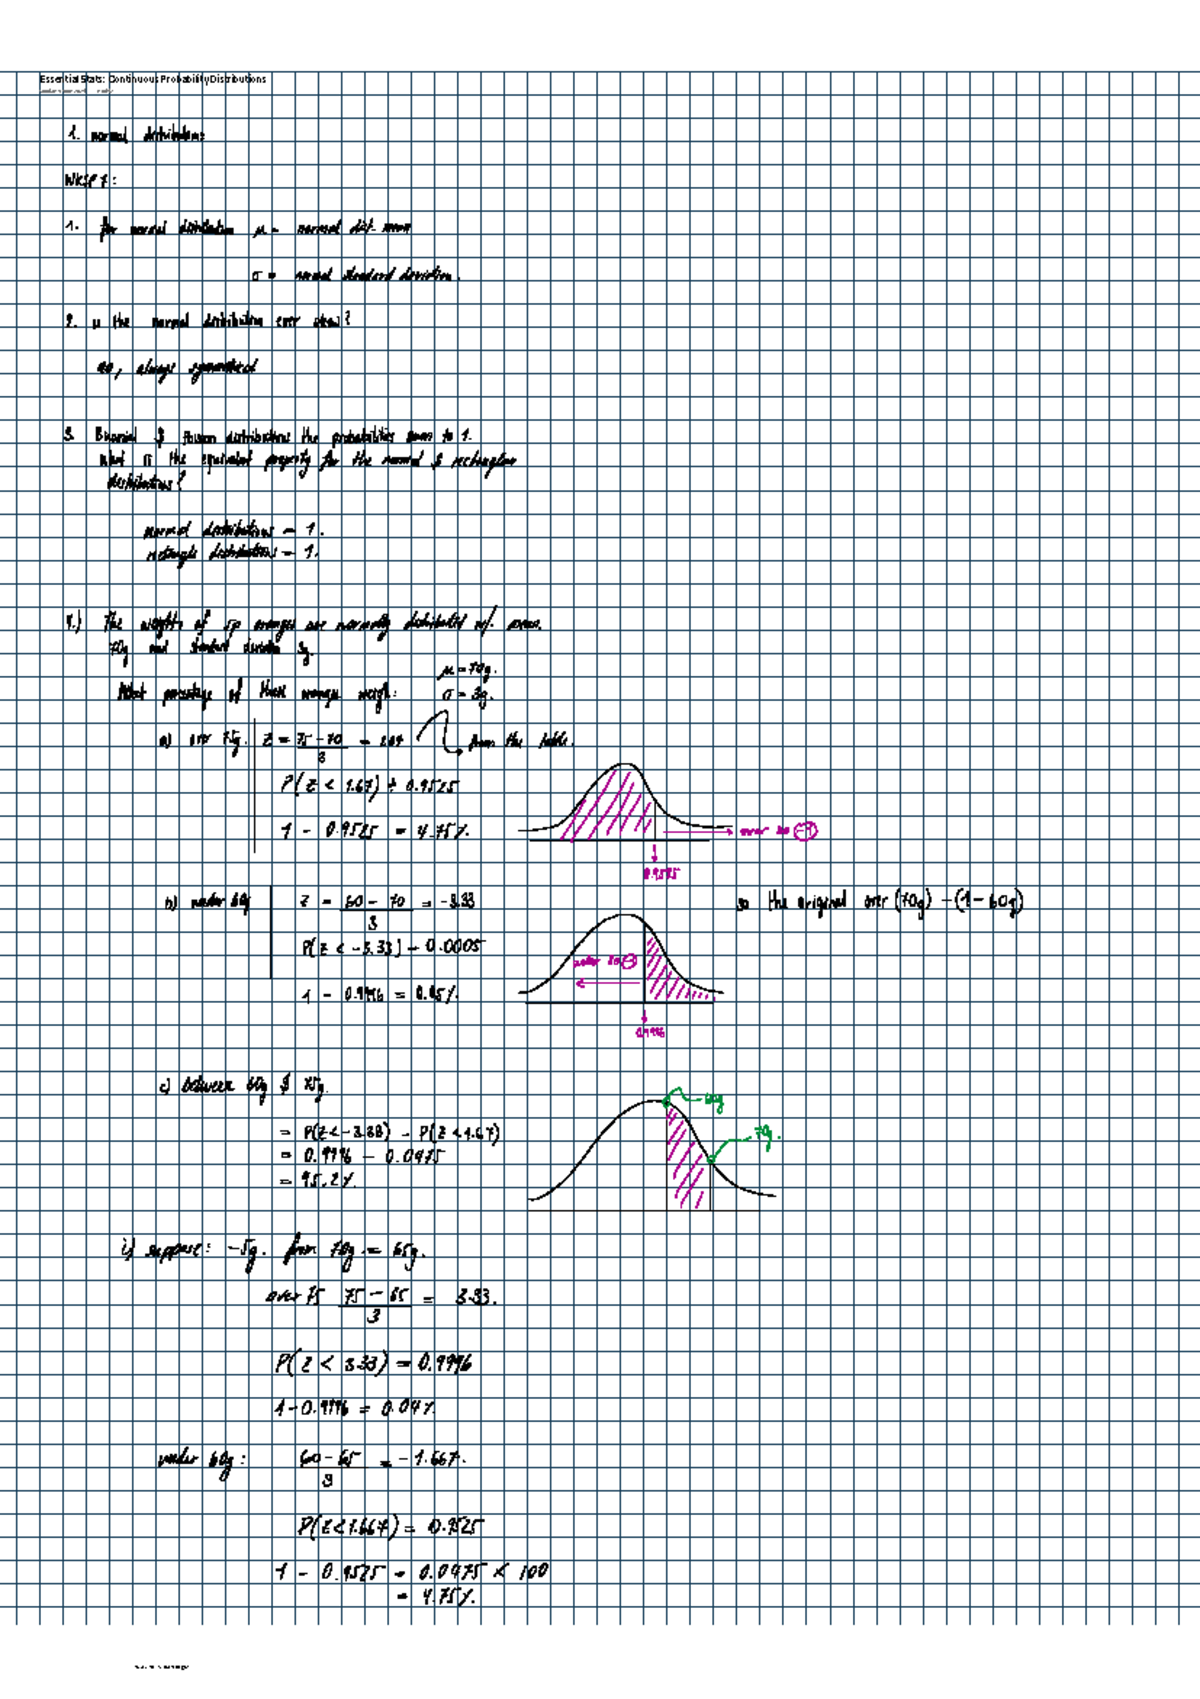 Essential Stats: Continuous Probability Distributions
1. normal distributions
WKSP 7:
1. for normal distribution μ = normal dist. mean
σ = normal standard deviation.
2. is the normal distribution ever skew?
no, always symmetrical
3. Binomial & poisson distributions the probabilities sum to 1.
what is the equivalent property for the normal & rectangular
distributions?
normal distributions = 1.
rectangle distributions = 1.
4.) The weights of oranges are normally distributed w/. mean.
70g and standard deviation 3g.
μ = 70g.
What percentage of these oranges weigh: σ = 3g.
a) over 75g. Z = 75 - 70 / 3 = from the table.
P(Z < 1.67) = 0.9525
1 - 0.9525 = 4.75%.
over
0.9525
b) under 60g Z = 60 - 70 / 3 = -3.33
so the original over (70g) - (1 - 60g)
P(Z < -3.33) = 0.0005
under
1 - 0.9996 = 0.05%.
0.9996
c) between 60g & 75g.
60g
= P(Z < -3.33) - P(Z < 1.67)
70g.
= 0.9996 - 0.0475
= 95.2%.
i) suppose: -5g. from 70g = 65g.
over 75 75 - 65 / 3 = 3.33.
P(Z < 3.33) = 0.9996
1 - 0.9996 = 0.04%
under 60g: 60 - 65 / 3 = -1.667.
P(Z < 1.667) = 0.9525
1 - 0.9525 = 0.0475 × 100
= 4.75%.